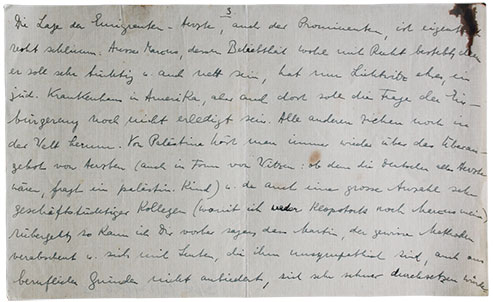 3
Die Lage der Emigranten-Ärzte, auch der Prominenten, ist eigentl
recht schlimm. Ausser Marcus, dessen Beliebtheit wohl mit Recht besteht, denn
er soll sehr tüchtig u. auch nett sein, hat nun Lichtwitz eher, ein
jüd. Krankenhaus in Amerika, aber auch dort soll die Frage der Ein-
bürgerung noch nicht erledigt sein. Alle anderen ziehen noch in
der Welt herum. Von Palästina hört man immer wieder über das Überan-
gebot von Ärzten (auch in Form von Witzen: ob denn die Deutschen alle Ärzte
wären, fragt ein palästin. Kind) u. da auch eine grosse Anzahl sehr
geschäftstüchtiger Kollegen (womit ich weder Klopstock noch Marcus meine)
rübergeht, so kann ich Dir vorher sagen, dass Martin, der gewisse Methoden
verabscheut u. sich mit Leuten, die ihm unsympathisch sind, auch aus
beruflichen Gründen nicht anbiedert, sich sehr schwer durchsetzen würde